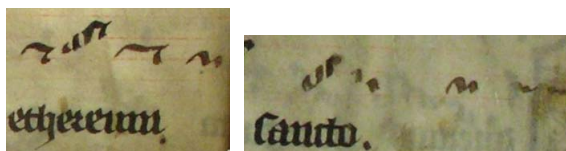 ethereum.
sancto.